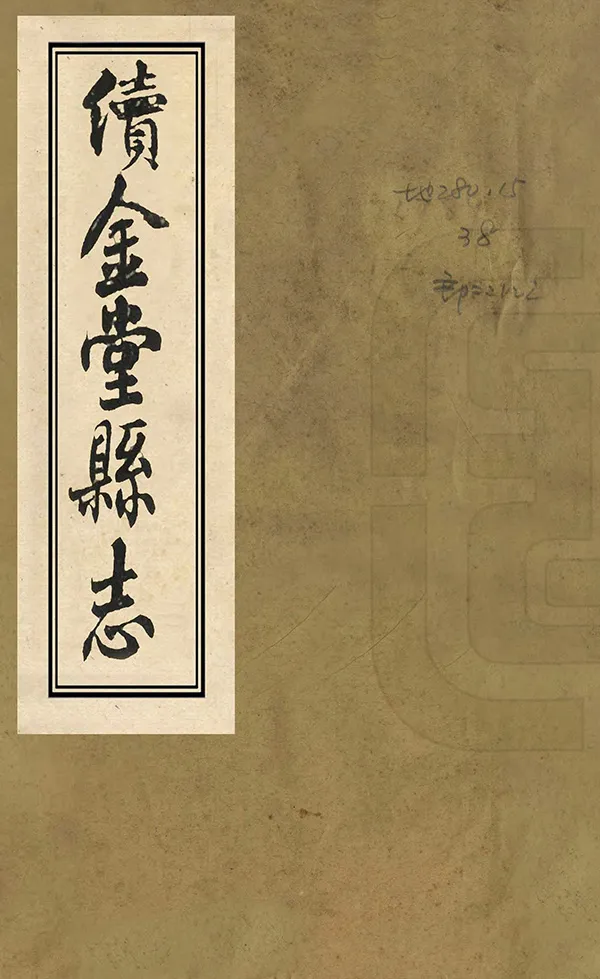 續金堂縣志
地280.15
38